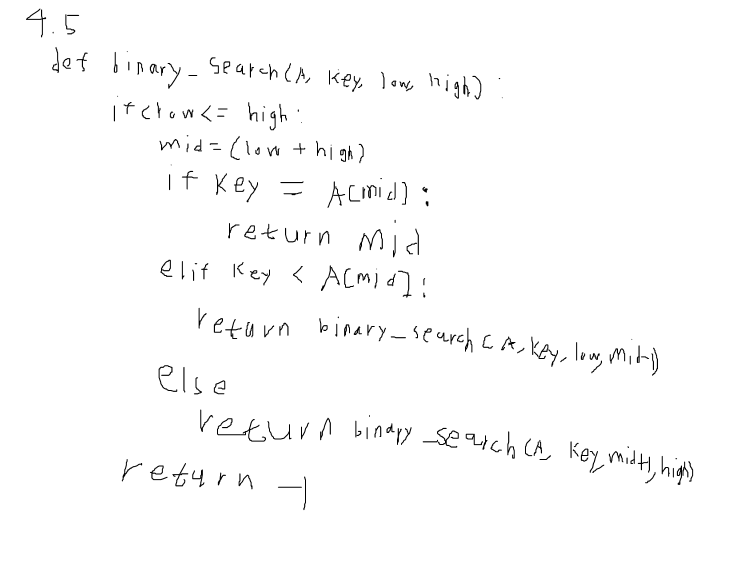 4.5
def binary_search(A, key, low, high):
if(low<= high:
mid=(low + high)
if key = A[mid]:
return mid
elif key < A[mid]:
return binary_search(A, key, low, mid-1)
else
return binary_search(A, key, mid+1, high)
return -1